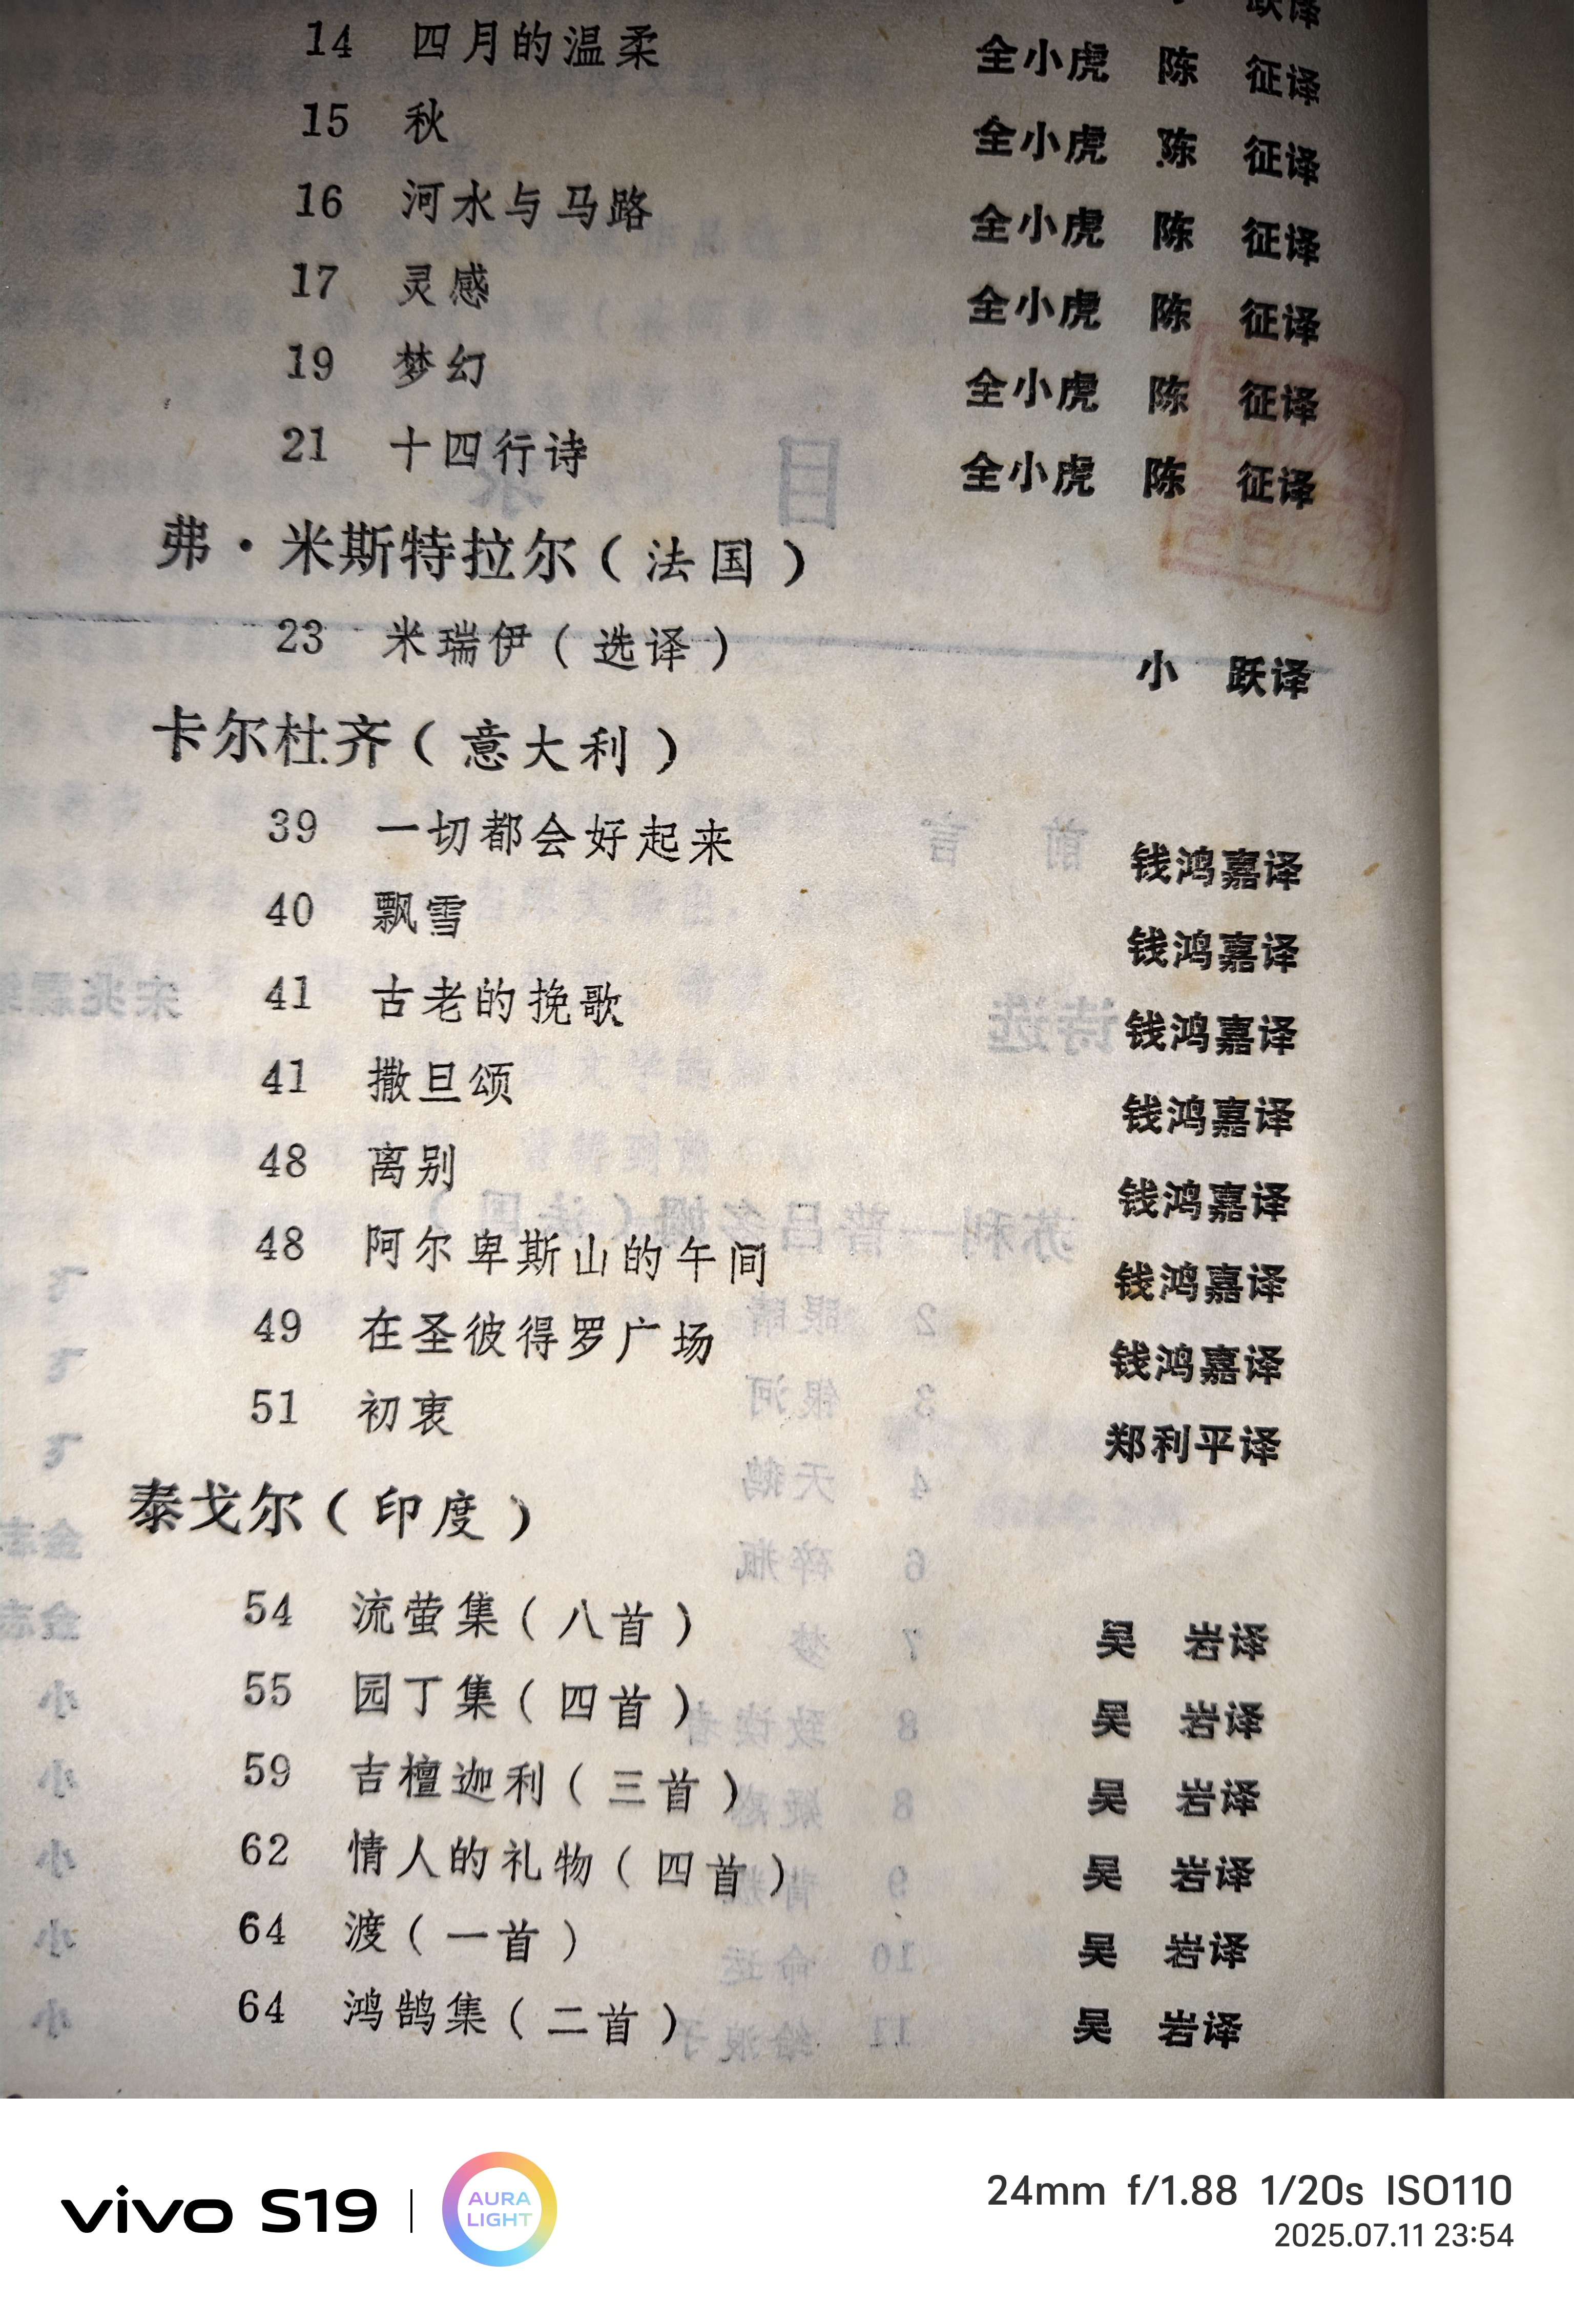 跃译
14 四月的温柔 全小虎 陈 征译
15 秋 全小虎 陈 征译
16 河水与马路 全小虎 陈 征译
17 灵感 全小虎 陈 征译
19 梦幻 全小虎 陈 征译
21 十四行诗 全小虎 陈 征译
弗·米斯特拉尔（法国）
23 米瑞伊（选译） 小 跃译
卡尔杜齐（意大利）
39 一切都会好起来 钱鸿嘉译
40 飘雪 钱鸿嘉译
41 古老的挽歌 钱鸿嘉译
41 撒旦颂 钱鸿嘉译
48 离别 钱鸿嘉译
48 阿尔卑斯山的午间 钱鸿嘉译
49 在圣彼得罗广场 钱鸿嘉译
51 初衷 郑利平译
泰戈尔（印度）
54 流萤集（八首） 吴 岩译
55 园丁集（四首） 吴 岩译
59 吉檀迦利（三首） 吴 岩译
62 情人的礼物（四首） 吴 岩译
64 渡（一首） 吴 岩译
64 鸿鹄集（二首） 吴 岩译
vivo S19 | AURA LIGHT
24mm f/1.88 1/20s ISO110
2025.07.11 23:54